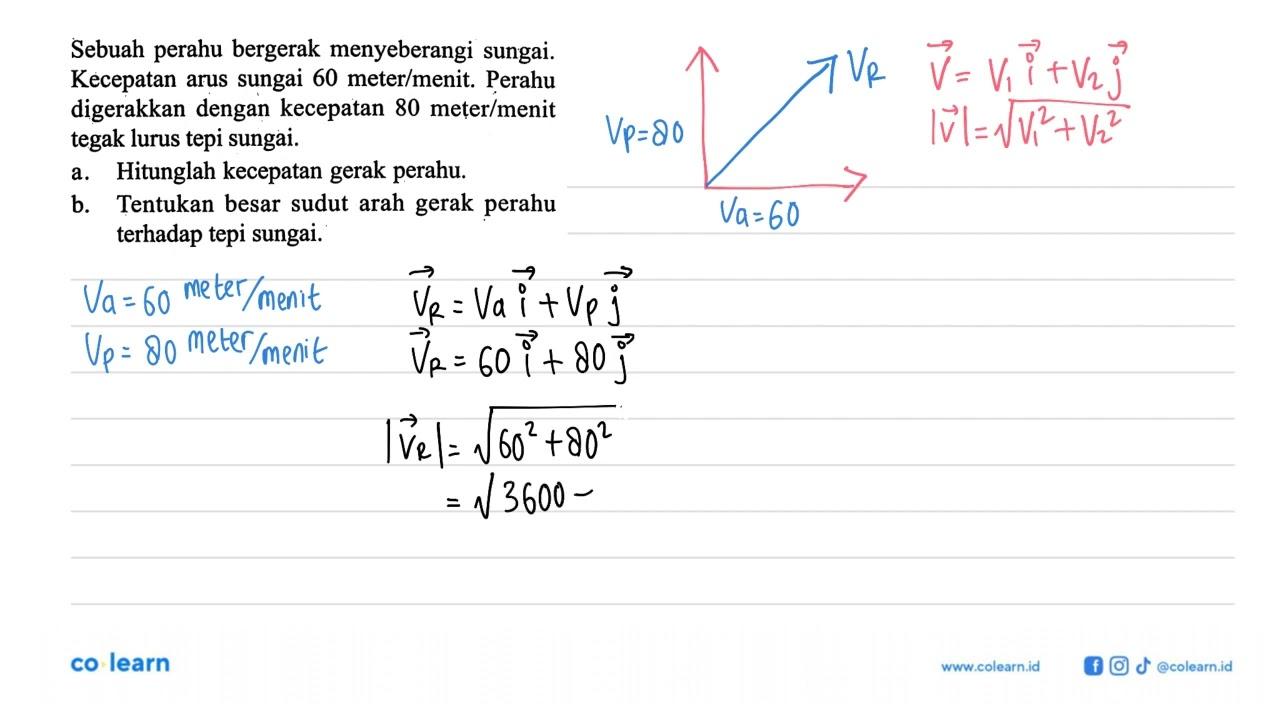 Sebuah perahu bergerak menyeberangi sungai.
Kecepatan arus sungai 60 meter/menit. Perahu
digerakkan dengan kecepatan 80 meter/menit
tegak lurus tepi sungai.
a. Hitunglah kecepatan gerak perahu.
b. Tentukan besar sudut arah gerak perahu
terhadap tepi sungai.
Vp=80
VR
Va=60
V⃗ = V₁ i⃗ + V₂ j⃗
|V⃗| = √(V₁² + V₂²)
Va = 60 meter/menit
Vp = 80 meter/menit
V⃗R = Va i⃗ + Vp j⃗
V⃗R = 60 i⃗ + 80 j⃗
|V⃗R| = √(60² + 80²)
= √3600 −
co learn
www.colearn.id
@colearn.id